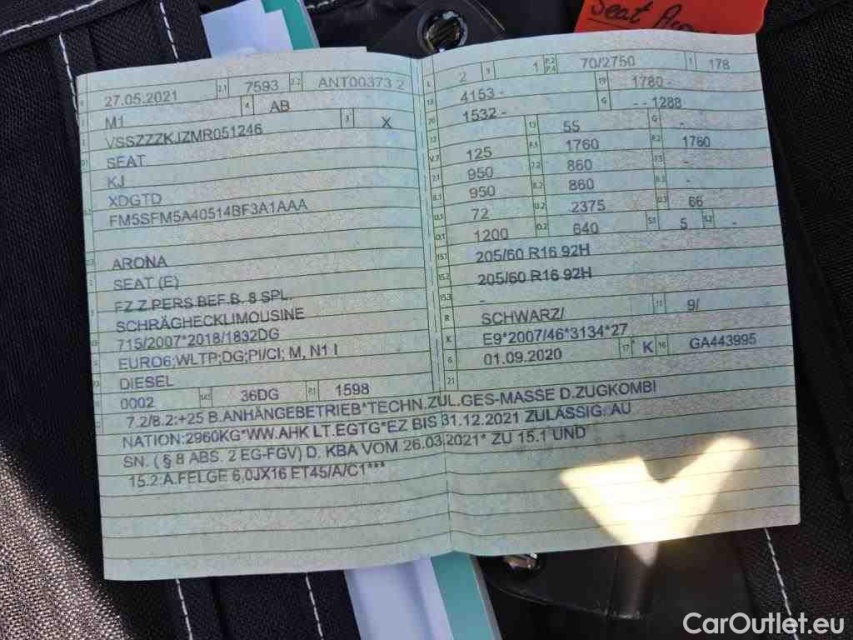 Seat
27.05.2021 2.1 7593 2.2 ANT00373 2
M1 4 AB
VSSZZZKJZMR051246 3 X
SEAT
KJ
XDGTD
FM5SFM5A40514BF3A1AAA
ARONA
SEAT (E)
FZ.Z.PERS.BEF.B. 8 SPL.
SCHRÄGHECKLIMOUSINE
715/2007*2018/1832DG
EURO6;WLTP;DG;PI/CI; M, N1 I
DIESEL
0002 36DG P.1 1598
L 2 9 1 P.2 P.4 70/2750 T 178
18 4153 - 19 1780 -
20 1532 - G - - 1288
12 - 13 55 Q -
V.7 125 F.1 1760 F.2 1760
7.1 950 7.2 860 7.3 -
8.1 950 8.2 860 8.3 -
U.1 72 U.2 2375 U.3 66
O.1 1200 O.2 640 S.1 5 S.2 -
15.1 205/60 R16 92H
15.2 205/60 R16 92H
15.3 -
R SCHWARZ/ 11 9/
K E9*2007/46*3134*27
6 01.09.2020 17 K 16 GA443995
21
7.2/8.2:+25 B.ANHÄNGEBETRIEB*TECHN.ZUL.GES-MASSE D.ZUGKOMBI
NATION:2960KG*WW.AHK LT.EGTG*EZ BIS 31.12.2021 ZULÄSSIG: AU
SN. ( § 8 ABS. 2 EG-FGV) D. KBA VOM 26.03.2021* ZU 15.1 UND
15.2 A.FELGE 6,0JX16 ET45/A/C1***
CarOutlet.eu